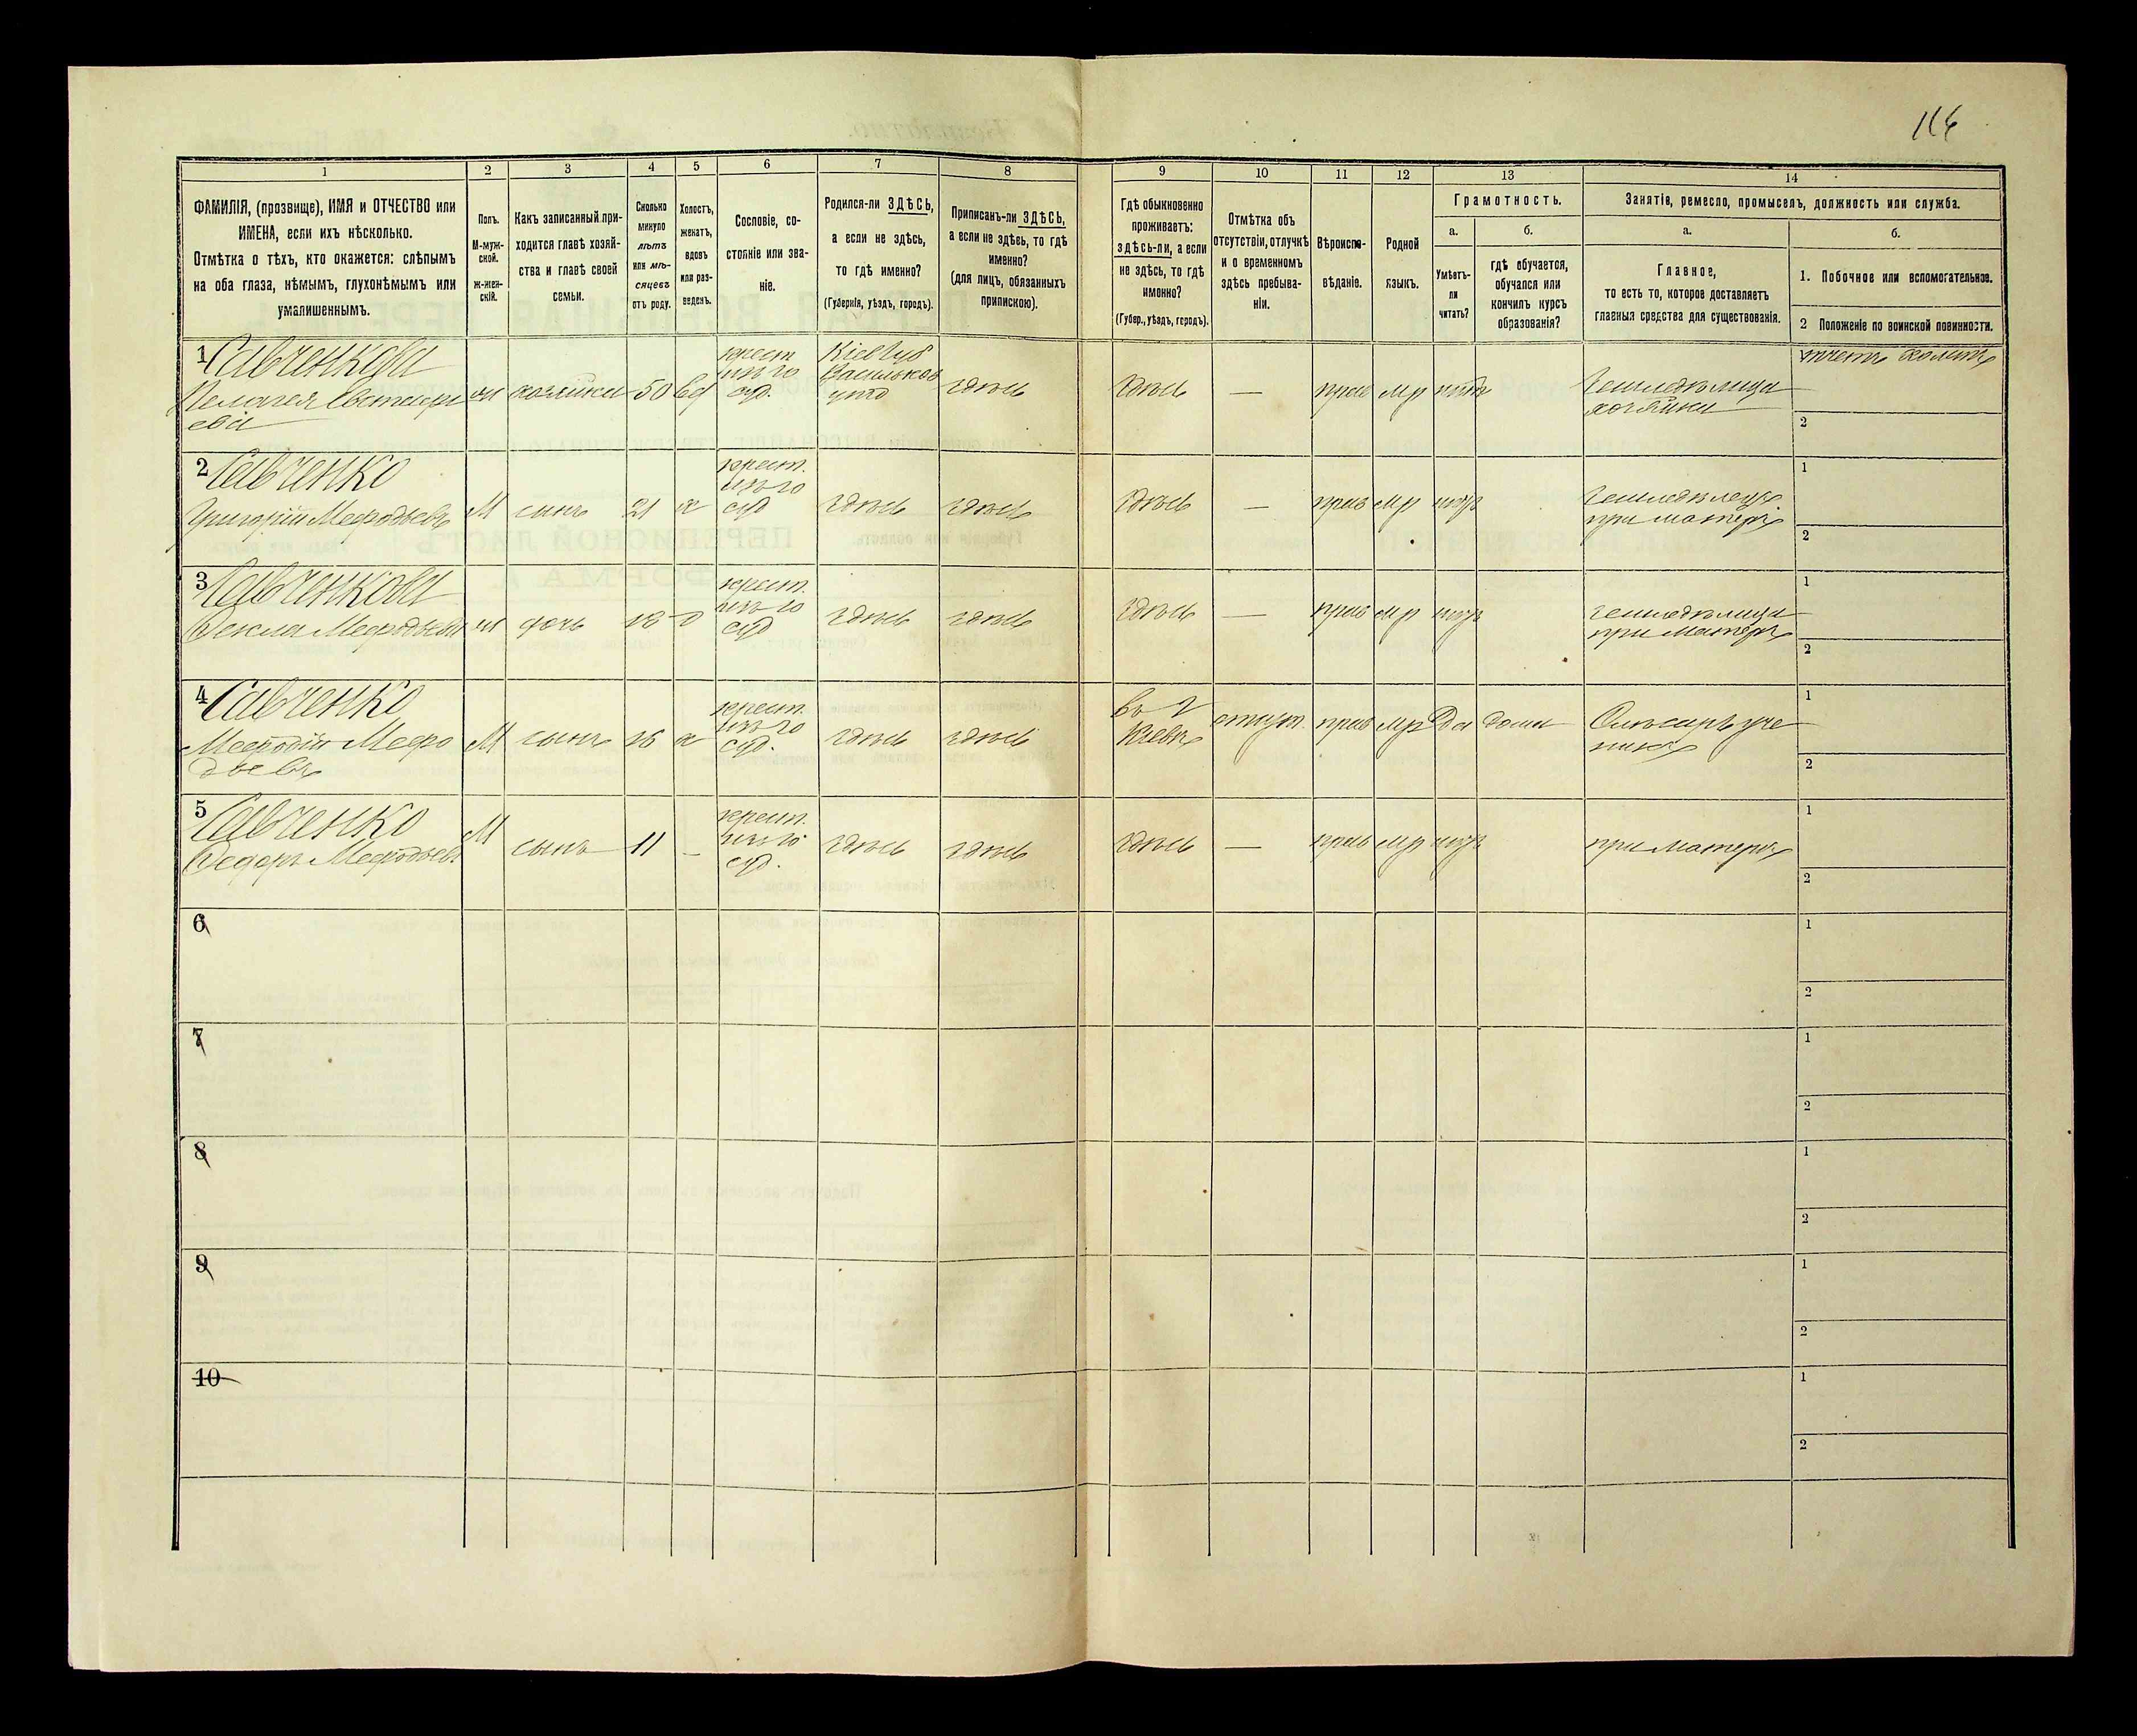 116
1
2
3
4
5
6
7
8
9
10
11
12
13
14
ФАМИЛІЯ, (прозвище), ИМЯ и ОТЧЕСТВО или
ИМЕНА, если ихъ нѣсколько.
Отмѣтка о тѣхъ, кто окажется: слѣпымъ
на оба глаза, нѣмымъ, глухонѣмымъ или
умалишеннымъ.
Полъ.
М-муж-
ской.
ж-жен-
скій.
Какъ записанный при-
ходится главѣ хозяй-
ства и главѣ своей
семьи.
Сколько
минуло
лѣтъ
или мѣ-
сяцевъ
отъ роду.
Холостъ,
женатъ,
вдовъ
или раз-
веденъ.
Сословіе, со-
стояніе или зва-
ніе.
Родился-ли ЗДѢСЬ,
а если не здѣсь,
то гдѣ именно?
(Губернія, уѣздъ, городъ).
Приписанъ-ли ЗДѢСЬ,
а если не здѣсь, то гдѣ
именно?
(для лицъ, обязанныхъ
припискою).
Гдѣ обыкновенно
проживаетъ:
здѣсь-ли, а если
не здѣсь, то гдѣ
именно?
(Губер., уѣздъ, городъ).
Отмѣтка объ
отсутствіи, отлучкѣ
и о временномъ
здѣсь пребыва-
ніи.
Вѣроиспо-
вѣданіе.
Родной
языкъ.
Грамотность.
а.
б.
Умѣетъ-
ли
читать?
гдѣ обучается,
обучался или
кончилъ курсъ
образованія?
Занятія, ремесло, промыселъ, должность или служба.
а.
б.
Главное,
то есть то, которое доставляетъ
главныя средства для существованія.
1. Побочное или вспомогательное.
2 Положеніе по воинской повинности.
1 Савченкова
Пелагея
ева
хозяйка 50 вд
крест.
изъ го
суд.
Кіев губ
Васильков
уѣзд
здѣсь
здѣсь — прав мр нѣтъ
Земледѣлица
хозяйка
2
2 Савченко
Григорій Мефодьевъ
М сынъ 21 х
крест.
изъ го
суд
здѣсь здѣсь
здѣсь — прав мр нѣтъ
Земледѣлецъ
при матери
1
2
3 Савченкова
Фекла
ж дочь 18 д
крест.
изъ го
суд
здѣсь здѣсь
здѣсь — прав мр нѣтъ
земледѣлица
при матери
1
2
4 Савченко
Мефодій Мефо
дьевъ
М сынъ 16 х
крест.
изъ го
суд.
здѣсь здѣсь
въ г
Кіевѣ
отсут. прав мр Да дома
Слѣсарь уче
никъ
1
2
5 Савченко
Федоръ Мефодьевъ
М сынъ 11 —
крест.
изъ го
суд.
здѣсь здѣсь
здѣсь — прав мр нѣтъ
при матери
1
2
6
1
2
7
1
2
8
1
2
9
1
2
10
1
2